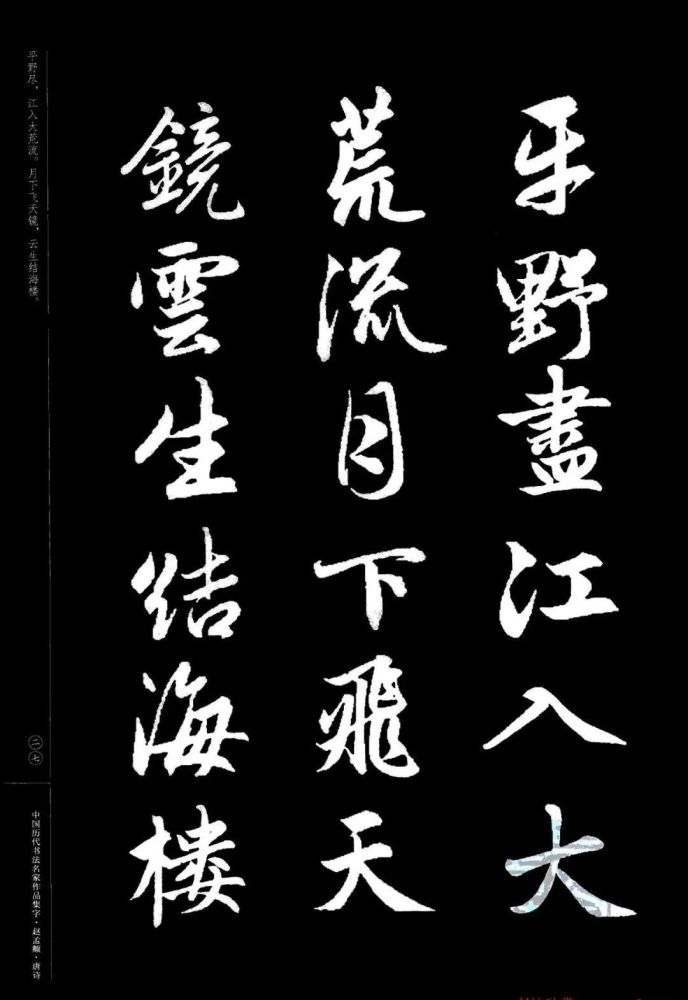 平野盡江入大
荒流月下飛天
鏡雲生结海楼
平野尽，江入大荒流。月下飞天镜，云生结海楼。
二七
中国历代书法名家作品集字·赵孟頫·唐诗